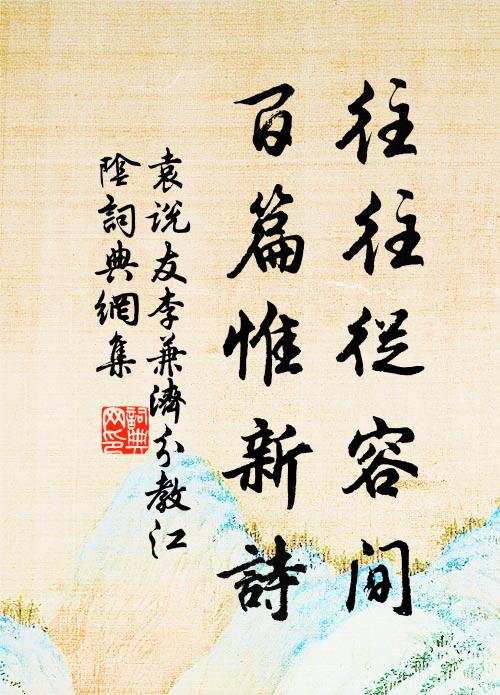 往往從容間
百篇惟新詩
袁說友李兼濟分教江
陰詞典網集
詞典
网印